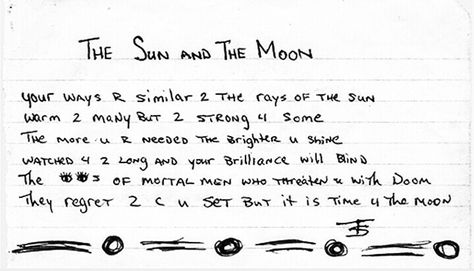 The Sun and The Moon
your ways R similar 2 The rays of the sun
warm 2 many But 2 strong 4 some
The more u R needed The Brighter u shine
watched 4 2 long and your Brilliance will Blind
The 👁👁s of mortal men who threaten u with Doom
They regret 2 C u set But it is Time 4 The moon